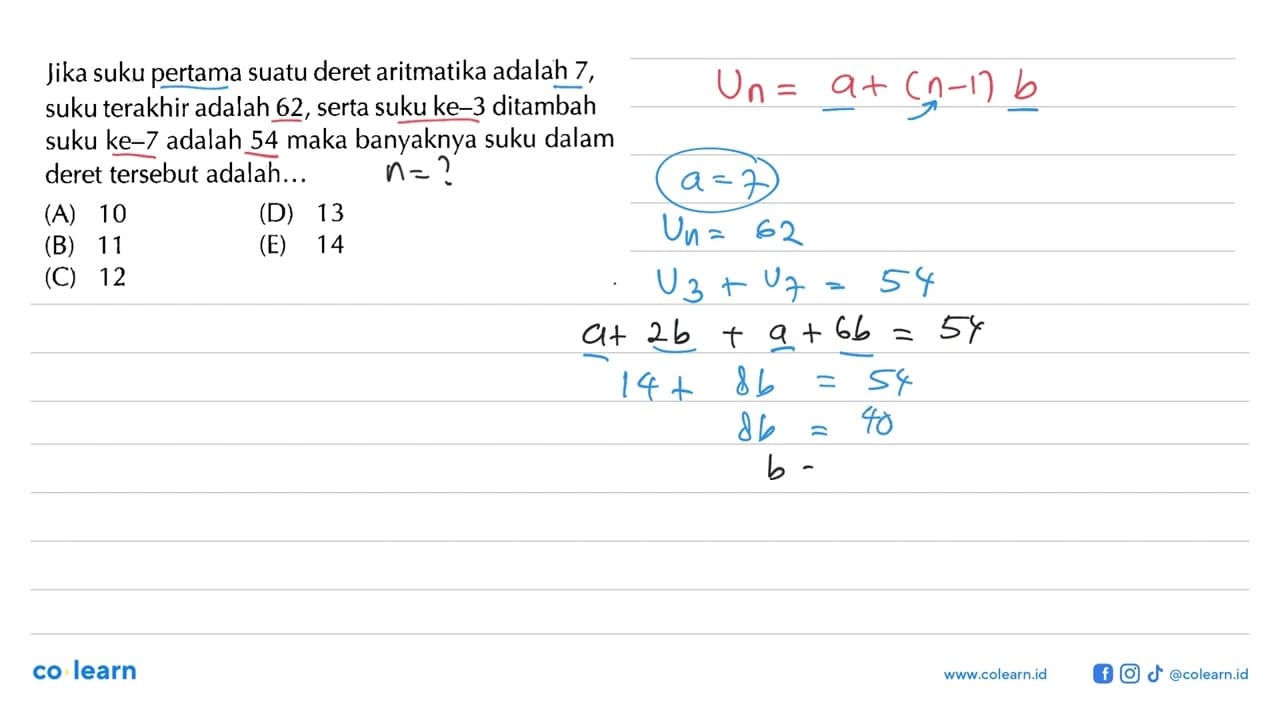 Jika suku pertama suatu deret aritmatika adalah 7,
suku terakhir adalah 62, serta suku ke–3 ditambah
suku ke–7 adalah 54 maka banyaknya suku dalam
deret tersebut adalah...
n = ?
(A) 10
(B) 11
(C) 12
(D) 13
(E) 14
Un = a + (n-1) b
a = 7
Un = 62
U3 + U7 = 54
a + 2b + a + 6b = 54
14 + 8b = 54
8b = 40
b -
co learn
www.colearn.id
@colearn.id